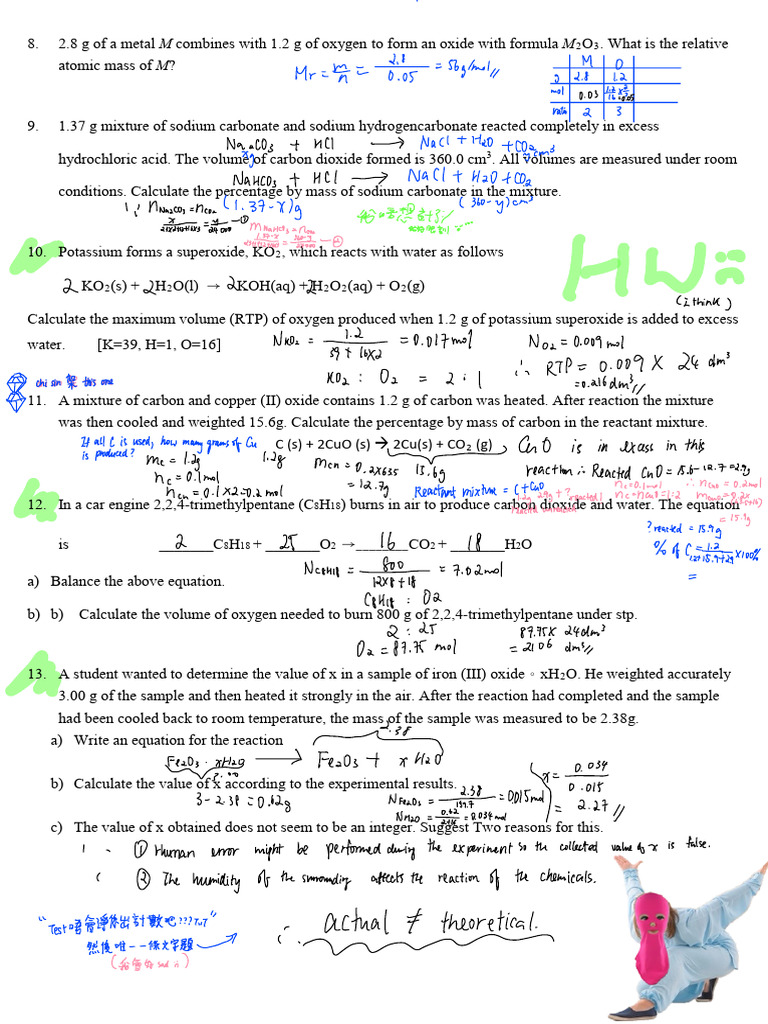 8. 2.8 g of a metal M combines with 1.2 g of oxygen to form an oxide with formula M₂O₃. What is the relative
atomic mass of M?
Mr = m/n = 2.8/0.05 = 56g/mol //
M O
2.8 1.2
mol 0.03
ratio 2 3
9. 1.37 g mixture of sodium carbonate and sodium hydrogencarbonate reacted completely in excess
Na₂CO₃ + HCl → NaCl + H₂O + CO₂
hydrochloric acid. The volume of carbon dioxide formed is 360.0 cm³. All volumes are measured under room
NaHCO₃ + HCl → NaCl + H₂O + CO₂
conditions. Calculate the percentage by mass of sodium carbonate in the mixture.
(1.37-x)g (360-y)cm³
n Na₂CO₃ = n CO₂
10. Potassium forms a superoxide, KO₂, which reacts with water as follows
2 KO₂(s) + 2 H₂O(l) → 2 KOH(aq) + H₂O₂(aq) + O₂(g)
HW
(i think)
Calculate the maximum volume (RTP) of oxygen produced when 1.2 g of potassium superoxide is added to excess
water. [K=39, H=1, O=16]
N KO₂ = 1.2/39+16x2 = 0.017mol
N O₂ = 0.009mol
KO₂ : O₂ = 2 : 1
∴ RTP = 0.009 X 24 dm³
= 0.216dm³ //
chi sin 架 this one
11. A mixture of carbon and copper (II) oxide contains 1.2 g of carbon was heated. After reaction the mixture
was then cooled and weighted 15.6g. Calculate the percentage by mass of carbon in the reactant mixture.
If all C is used, how many grams of Cu
is produced?
C (s) + 2CuO (s) → 2Cu(s) + CO₂ (g)
CuO is in exass in this
reaction ∴ Reacted CuO = 15.6-12.7=2.9g
1.2g
15.6g
mc = 1.2g
nc = 0.1mol
ncu = 0.1X2=0.2mol
mcu = 0.2X63.5
= 12.7g
Reactant mixture = C + CuO
nc=0.1mol ∴ nCuO = 0.2mol
nc = nCuO = 1:2
= 15.9g
12. In a car engine 2,2,4-trimethylpentane (C₈H₁₈) burns in air to produce carbon dioxide and water. The equation
? reacted = 15.9g
is 2 C₈H₁₈ + 25 O₂ → 16 CO₂ + 18 H₂O
% of C = 1.2/1.2+15.9+2.9 x100%
=
N C₈H₁₈ = 800/12X8+18 = 7.02mol
a) Balance the above equation.
C₈H₁₈ : O₂
b) b) Calculate the volume of oxygen needed to burn 800 g of 2,2,4-trimethylpentane under stp.
2 : 25
O₂ = 87.75 mol
87.75X 24dm³
= 2106 dm³ //
13. A student wanted to determine the value of x in a sample of iron (III) oxide ◦ xH₂O. He weighted accurately
3.00 g of the sample and then heated it strongly in the air. After the reaction had completed and the sample
had been cooled back to room temperature, the mass of the sample was measured to be 2.38g.
2.38
a) Write an equation for the reaction
Fe₂O₃ · xH₂O → Fe₂O₃ + x H₂O
3.00
b) Calculate the value of x according to the experimental results.
3 - 2.38 = 0.62g
N Fe₂O₃ = 2.38/159.7 = 0.015mol
N H₂O = 0.62/ = 0.034mol
x = 0.034/0.015
= 2.27 //
c) The value of x obtained does not seem to be an integer. Suggest Two reasons for this.
① Human error might be performed during the experiment so the collected value of x is false.
② The humidity of the surrounding affects the reaction of the chemicals.
∴ actual ≠ theoretical.
"Test唔會淨係出計數吧???TuT"
然後唯一一條文字題